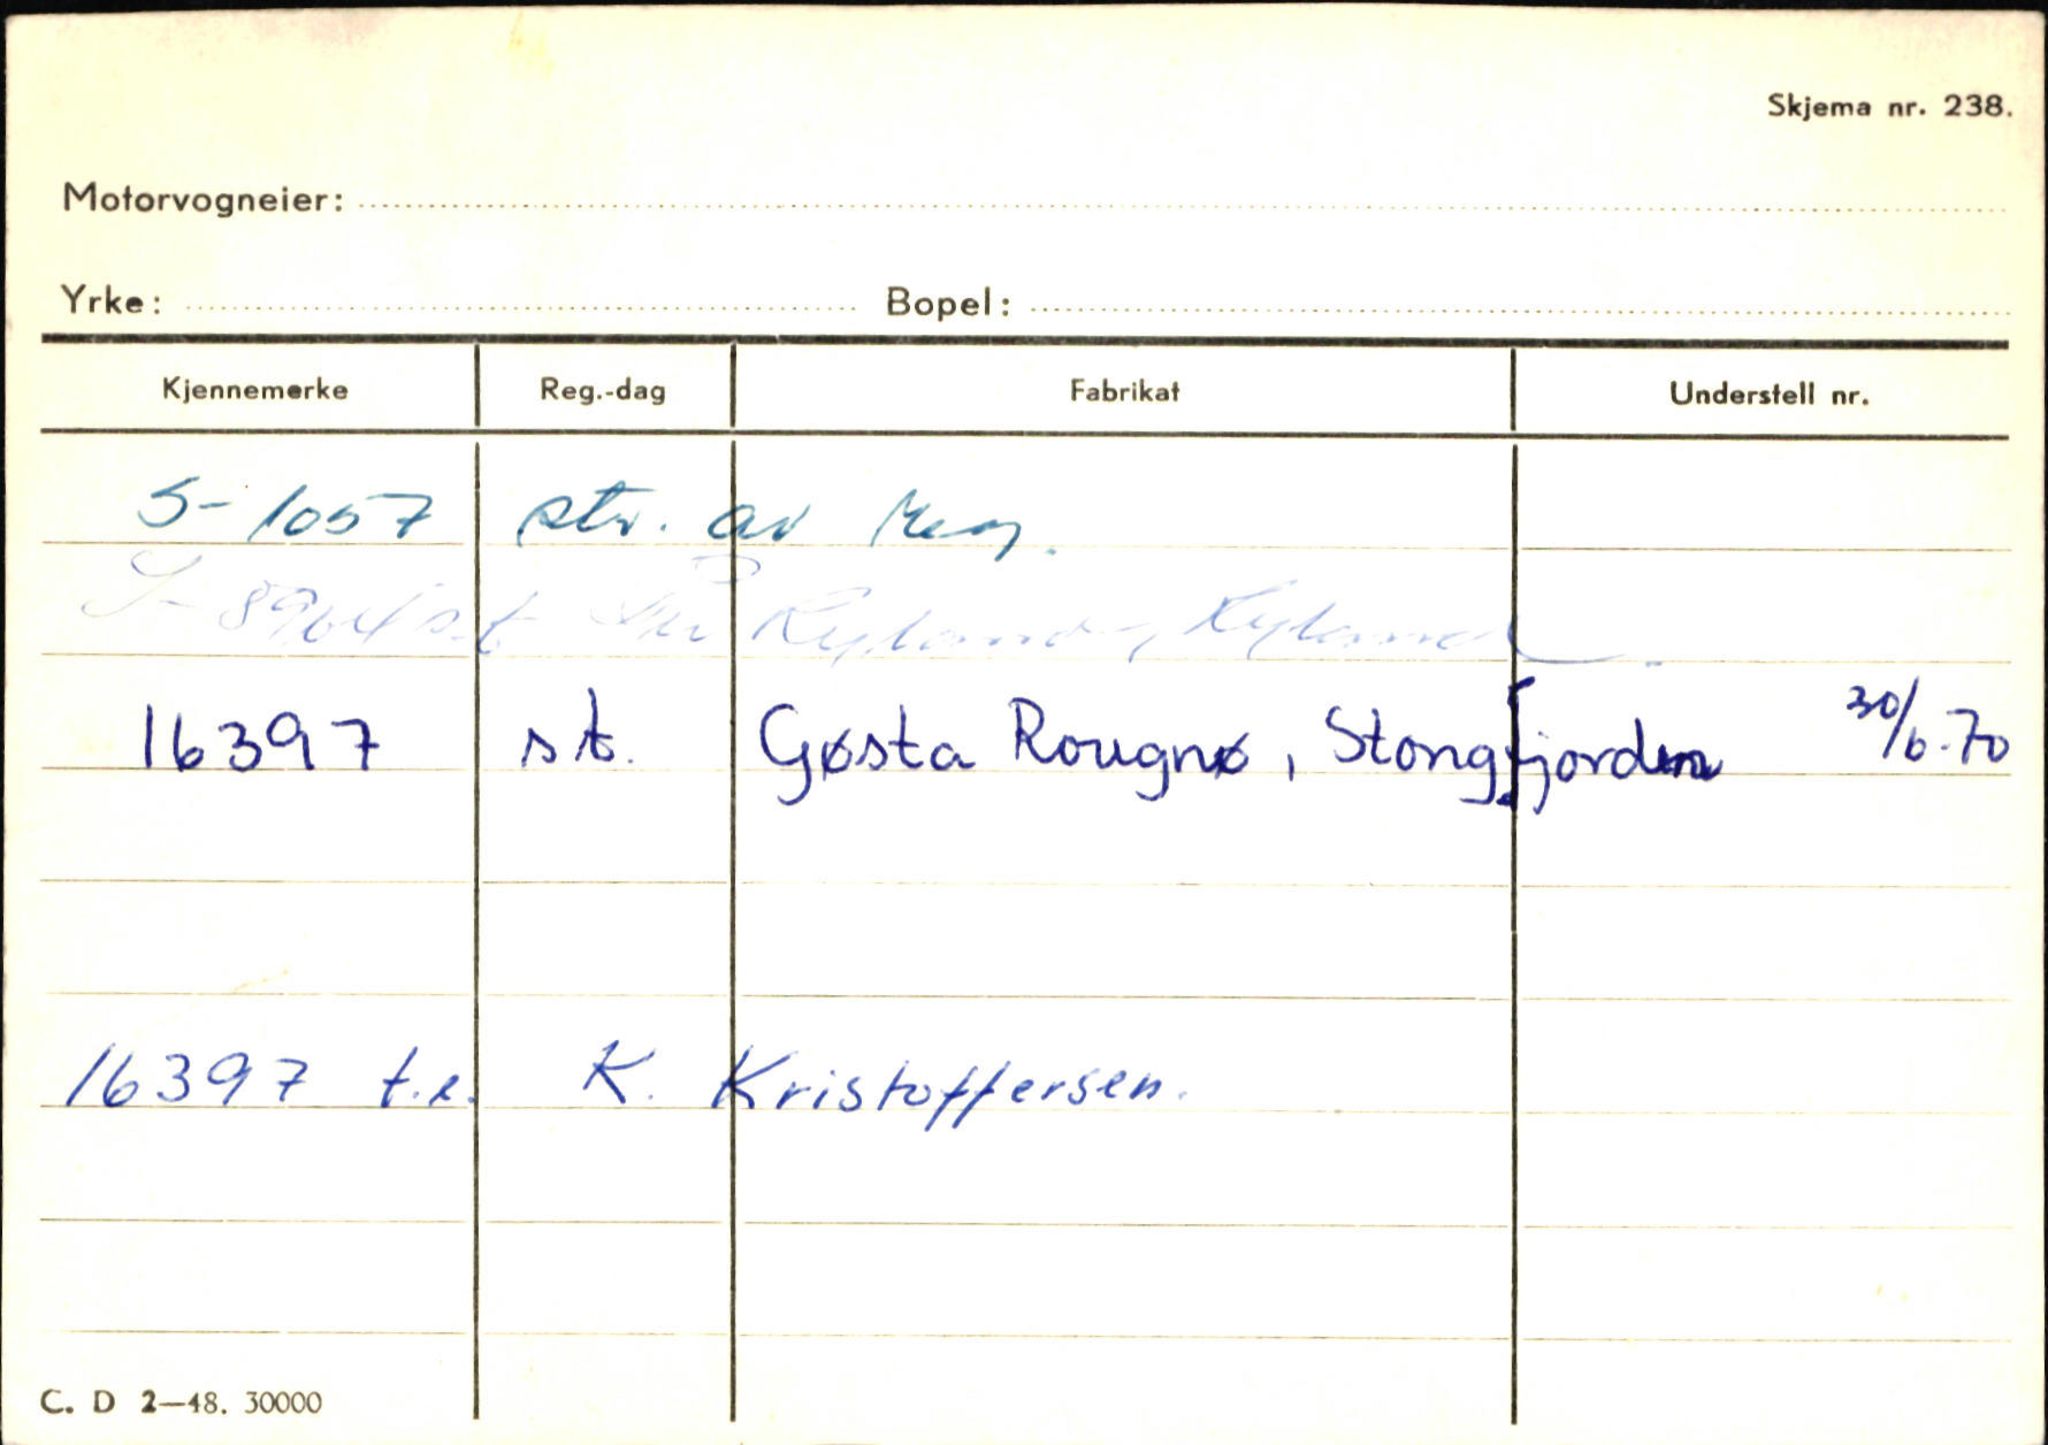 Skjema nr. 238.
Motorvogneier:
Yrke: Bopel:
Kjennemerke Reg.-dag Fabrikat Understell nr.
S-1057 str. av
S-8964 st. Kyland
16397 st. Gøsta Rougnø, Stongfjorden 30/6.70
16397 t.e. K. Kristoffersen.
C. D 2-48. 30000